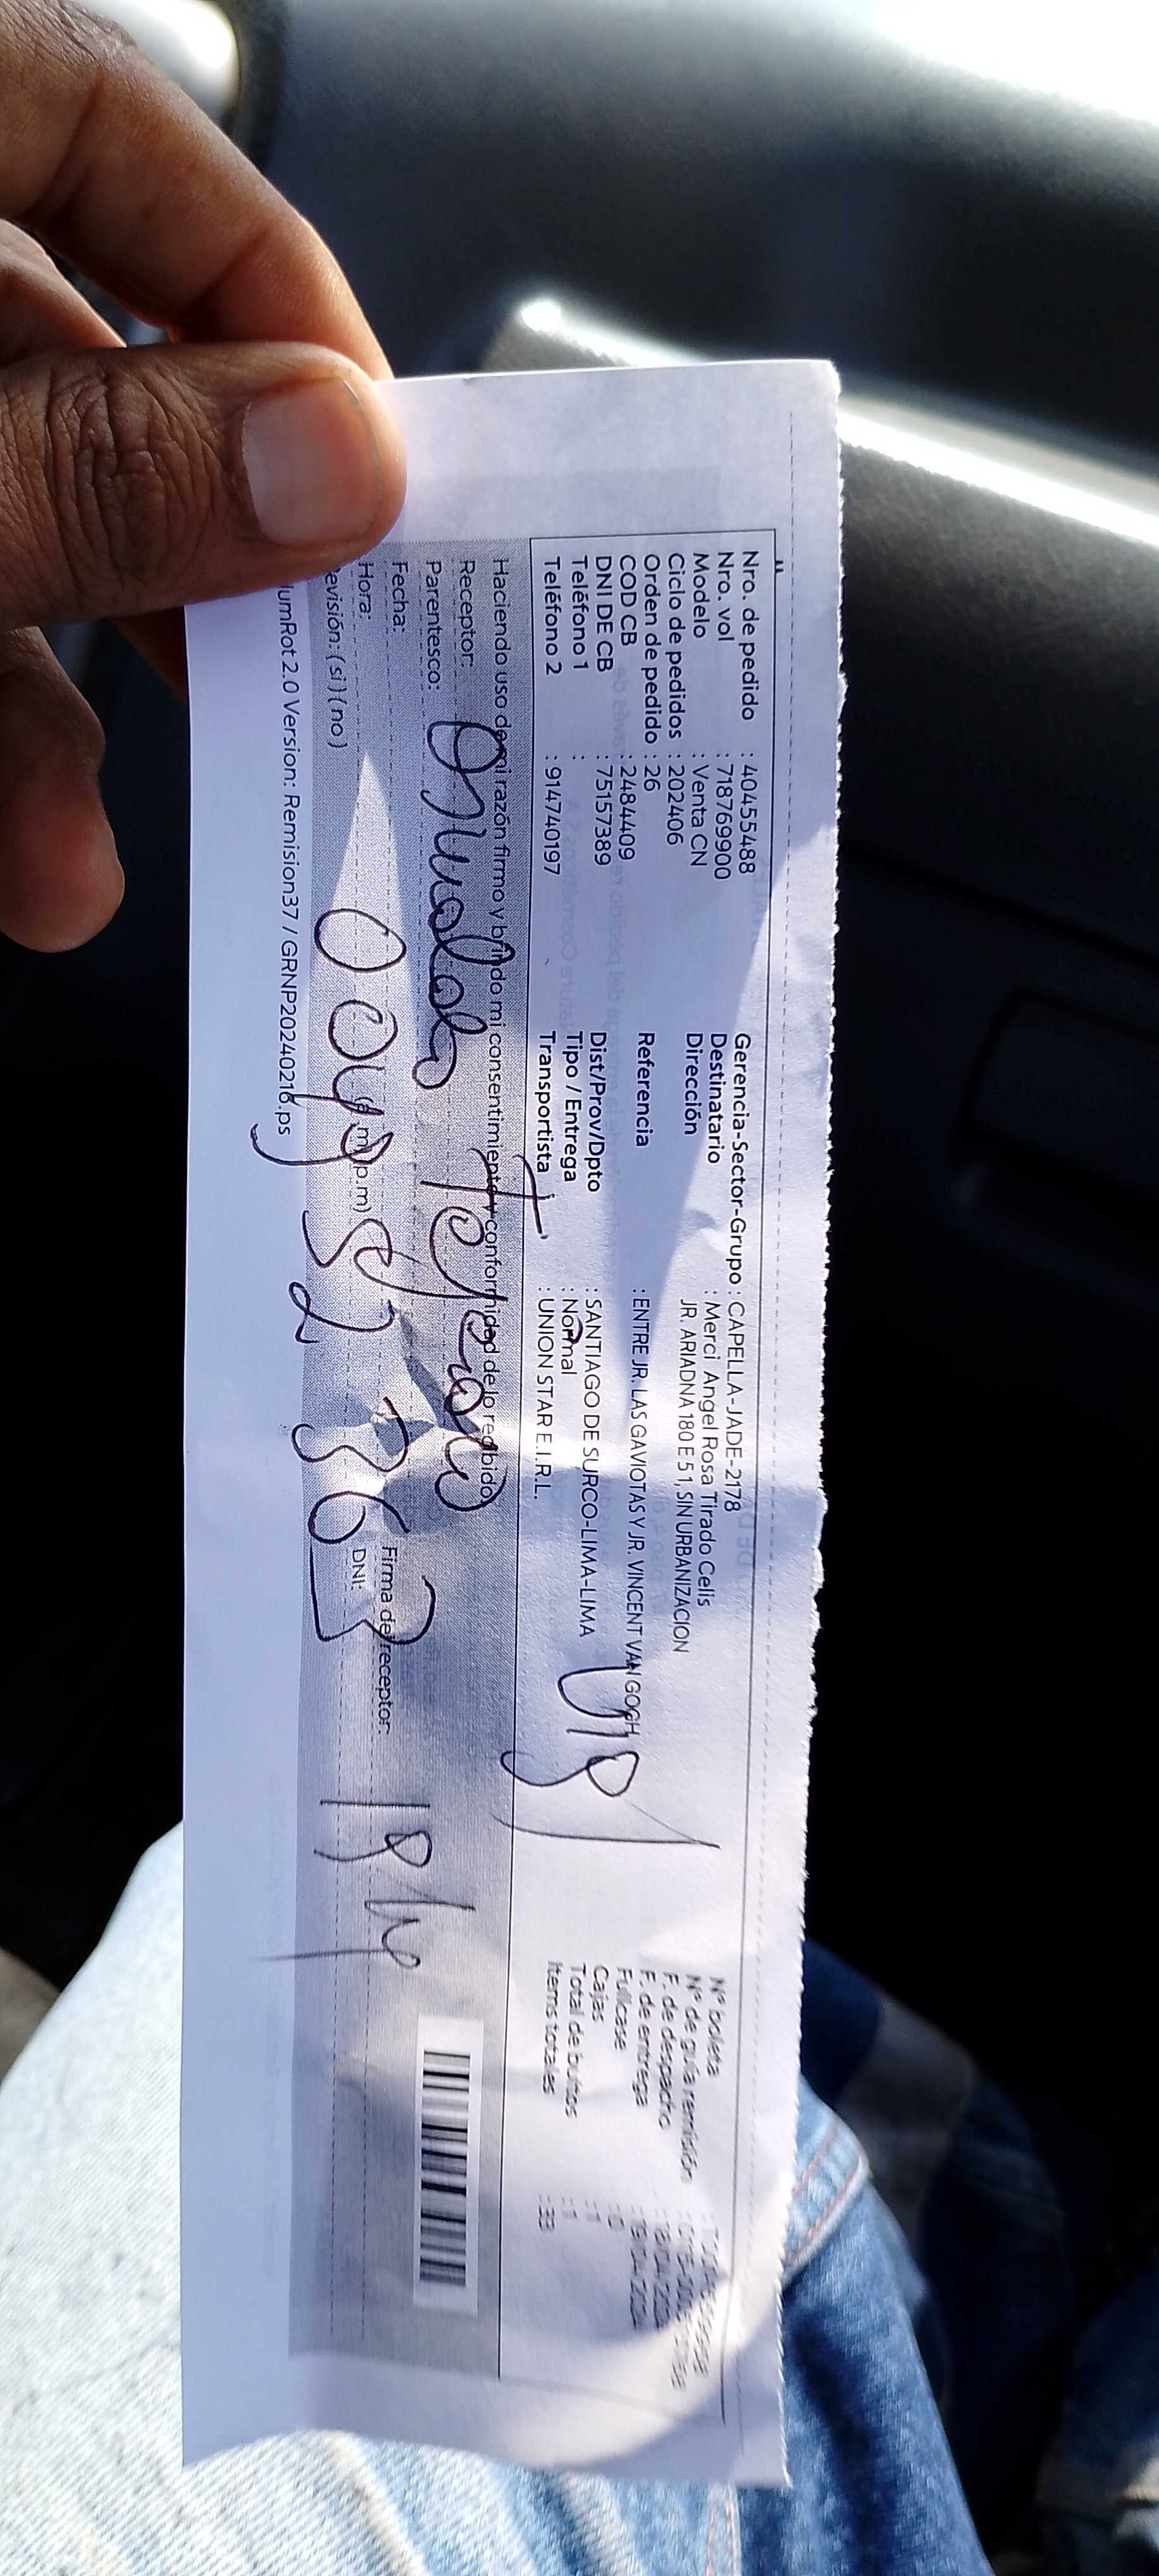 Nro. de pedido : 40455488
Nro. vol : 718769900
Modelo : Venta CN
Ciclo de pedidos : 202406
Orden de pedido : 26
COD CB : 2484409
DNI DE CB : 75157389
Teléfono 1 :
Teléfono 2 : 914740197
Gerencia-Sector-Grupo : CAPELLA-JADE-2178
Destinatario : Merci Angel Rosa Tirado Celis
Dirección JR. ARIADNA 180 E 5 1, SIN URBANIZACION
Referencia : ENTRE JR. LAS GAVIOTAS Y JR. VINCENT VAN GOGH
Dist/Prov/Dpto : SANTIAGO DE SURCO-LIMA-LIMA
Tipo / Entrega : Normal
Transportista : UNION STAR E.I.R.L.
N° boleta
N° de guía remisión
F. de despacho
F. de entrega
Fullcase
Cajas : 1
Total de bultos : 1
Items totales : 33
Haciendo uso de mi razón firmo y brindo mi consentimiento y conformidad de lo recibido
Receptor:
Parentesco:
Fecha:
Hora: p.m)
evisión: ( si ) ( no )
Firma del receptor:
DNI:
18
umRot 2.0 Version: Remision37 / GRNP20240216.ps